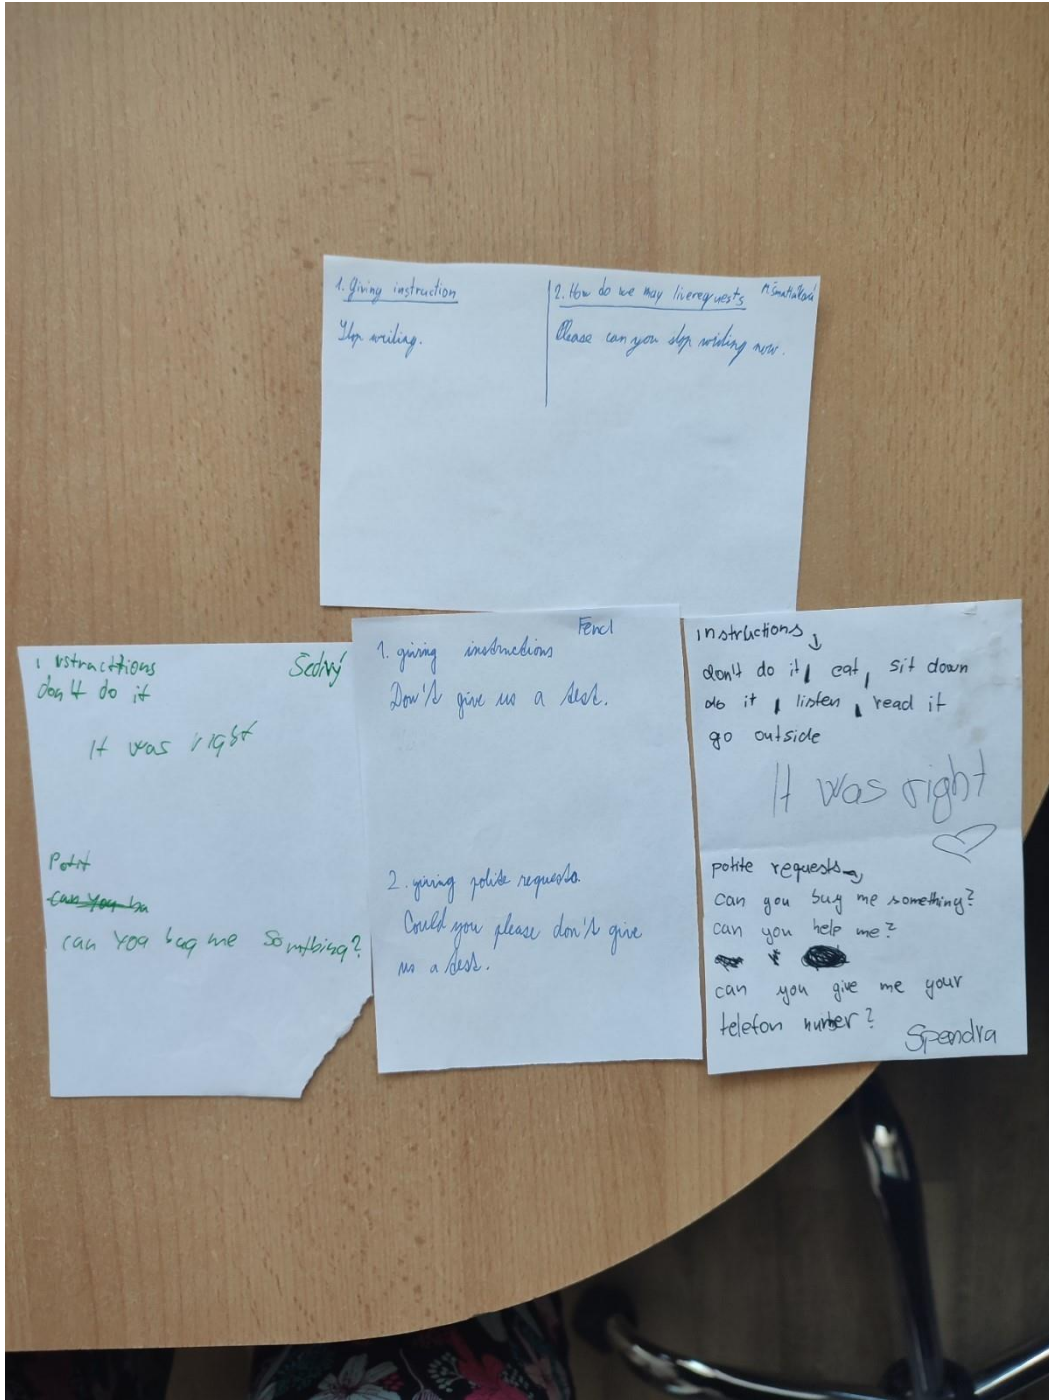 1. Giving instruction
Stop writing.
2. How do we may liverequests
Please can you stop writing now.
instracttions
Šedivý
don't do it
It was right
Polit
can you buy me somthing?
Fencl
1. giving instructions
Don't give us a test.
2. giving polite requests.
Could you please don't give
us a test.
instructions
don't do it, eat, sit down
do it, listen, read it
go outside
It was right
polite requests
can you buy me something?
can you help me?
can you give me your
telefon number?
Spendra